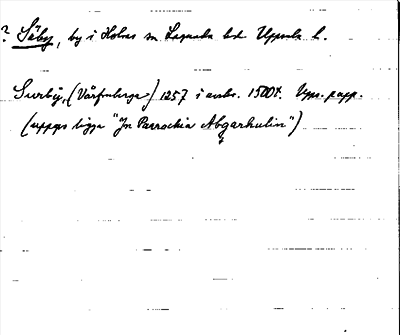 ? Säby, by i Holms sn. Lagunda hd. Uppsala l.
Surby, (Vårfruberga) 1257 i avskr. 1500t. Upps. papp.
(uppges ligga "In Parrochia Abgarhulin")